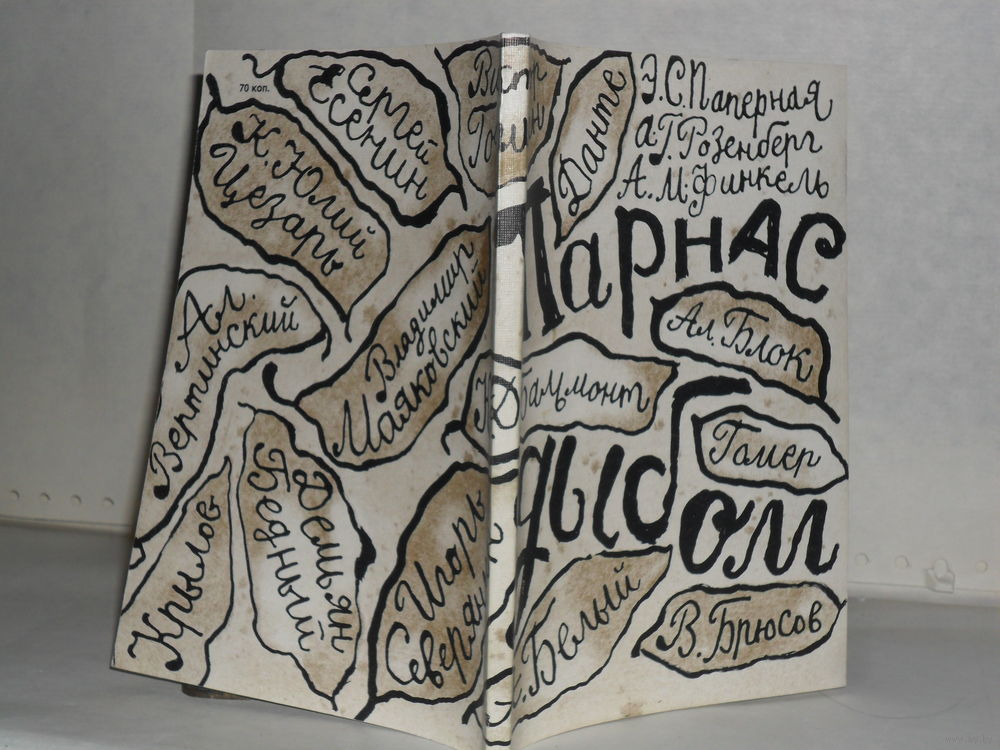 70 коп.
Сергей
Есенин
К. Юлий
Цезарь
Ал.
Вертинский
Владимир
Маяковский
Крылов
Демьян
Бедный
Игорь
Северянин
Данте
Э.С.Паперная
А.Г.Розенберг
А.М.Финкель
Парнас
дыбом
Ал. Блок
Бальмонт
Гомер
Белый
В. Брюсов